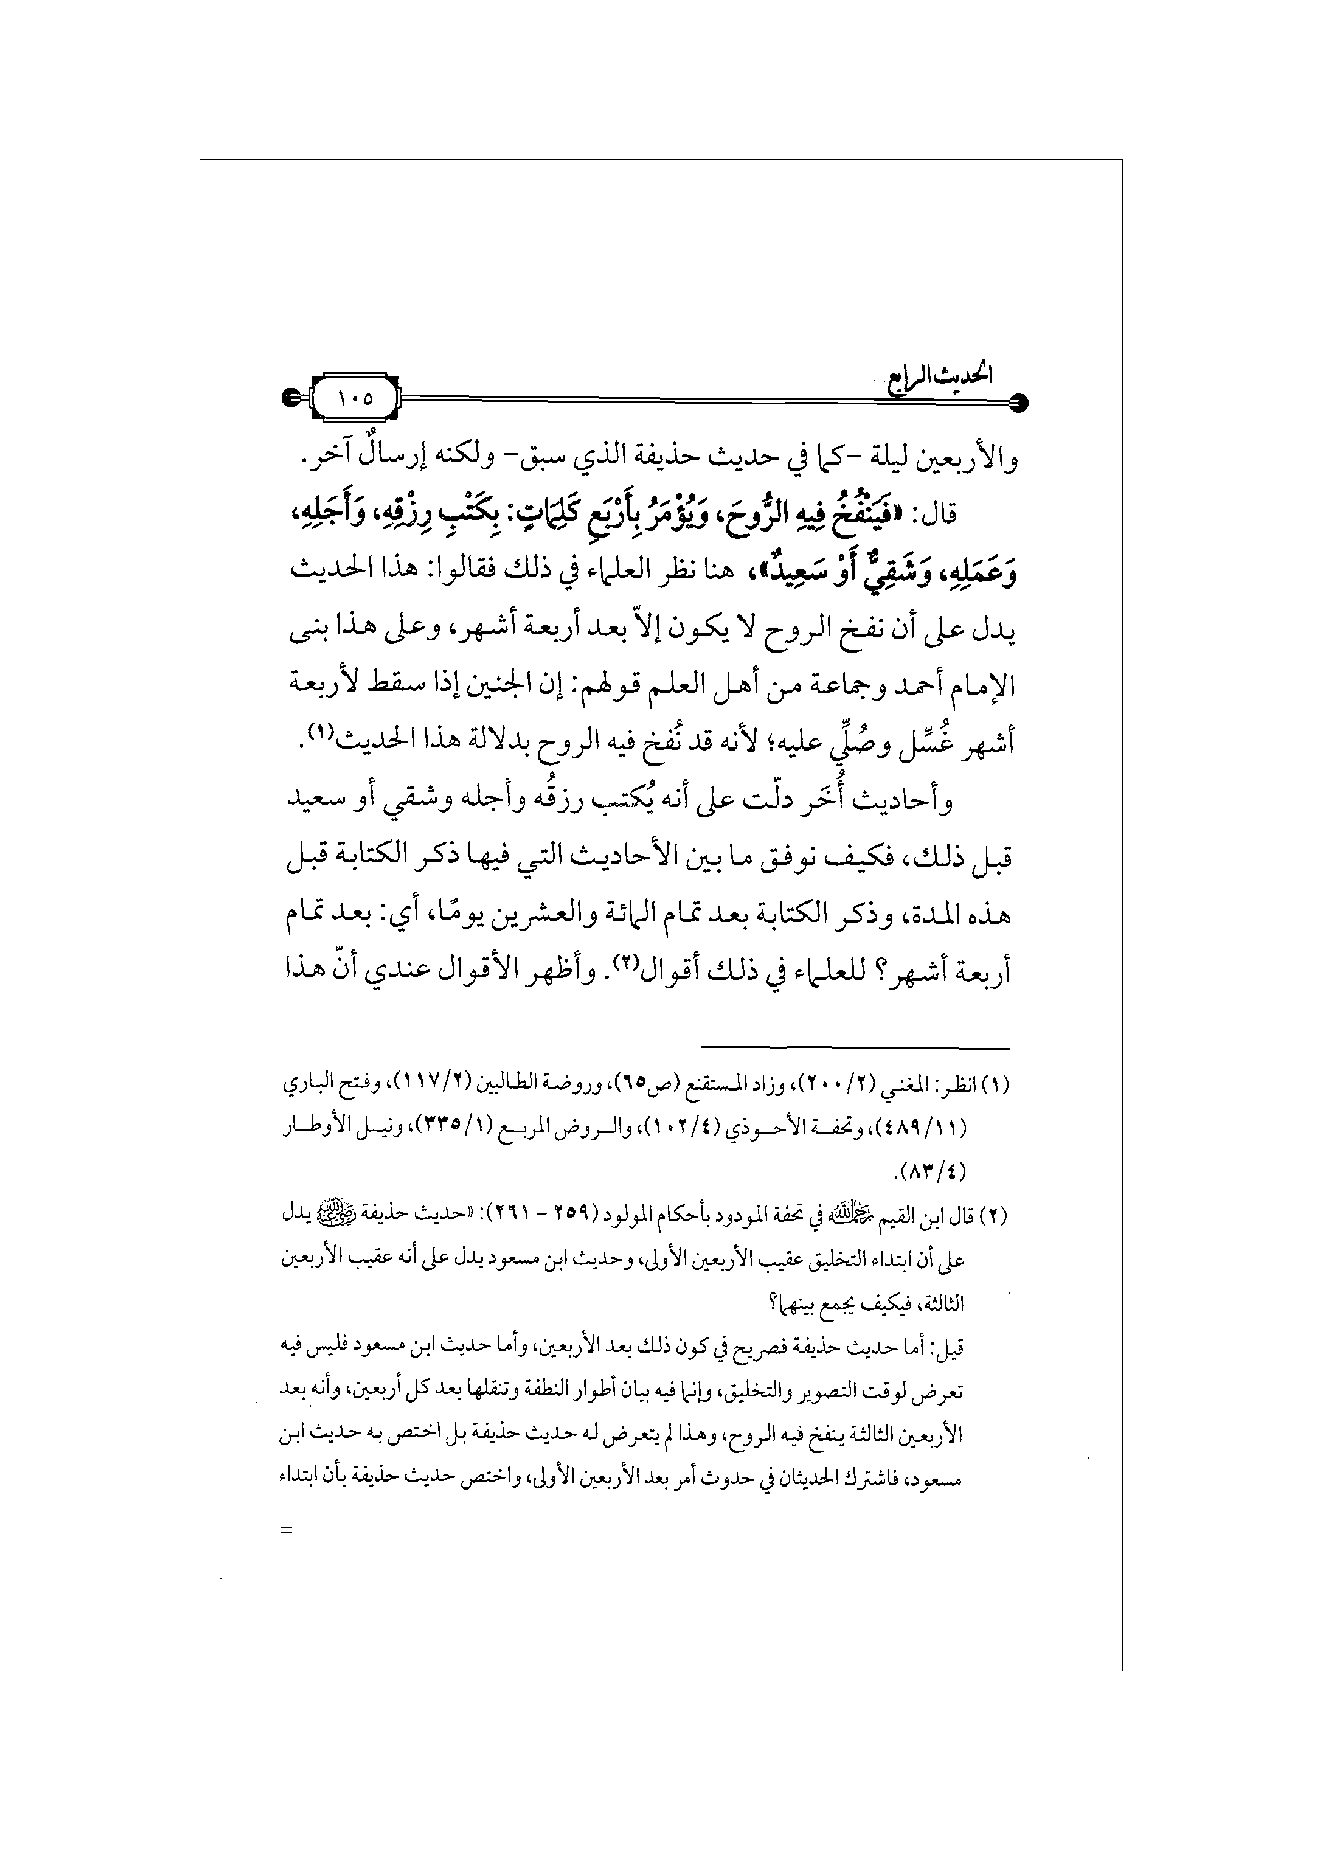 الحديث الرابع
١٠٥
والأربعين ليلة -كما في حديث حذيفة الذي سبق- ولكنه إرسالٌ آخر.
قال: «فَيَنْفُخُ فِيهِ الرُّوحَ، وَيُؤْمَرُ بِأَرْبَعِ كَلِمَاتٍ: بِكَتْبِ رِزْقِهِ، وَأَجَلِهِ،
وَعَمَلِهِ، وَشَقِيٌّ أَوْ سَعِيدٌ»، هنا نظر العلماء في ذلك فقالوا: هذا الحديث
يدل على أن نفخ الروح لا يكون إلاّ بعد أربعة أشهر، وعلى هذا بنى
الإمام أحمد وجماعة من أهل العلم قولهم: إن الجنين إذا سقط لأربعة
أشهر غُسِّل وصُلِّي عليه؛ لأنه قد نُفخ فيه الروح بدلالة هذا الحديث(١).
وأحاديث أُخَر دلّت على أنه يُكتب رزقُه وأجله وشقي أو سعيد
قبل ذلك، فكيف نوفق ما بين الأحاديث التي فيها ذكر الكتابة قبل
هذه المدة، وذكر الكتابة بعد تمام المائة والعشرين يومًا، أي: بعد تمام
أربعة أشهر؟ للعلماء في ذلك أقوال(٢). وأظهر الأقوال عندي أنّ هذا
(١) انظر: المغني (٢/ ٢٠٠)، وزاد المستقنع (ص٦٥)، وروضة الطالبين (٢/ ١١٧)، وفتح الباري
(١١/ ٤٨٩)، وتحفة الأحوذي (٤/ ١٠٢)، والروض المربع (١/ ٣٣٥)، ونيل الأوطار
(٤/ ٨٣).
(٢) قال ابن القيم رحمه الله في تحفة المودود بأحكام المولود (٢٥٩ – ٢٦١): «حديث حذيفة رضي الله عنه يدل
على أن ابتداء التخليق عقيب الأربعين الأولى، وحديث ابن مسعود يدل على أنه عقيب الأربعين
الثالثة، فيكيف يجمع بينهما؟
قيل: أما حديث حذيفة فصريح في كون ذلك بعد الأربعين، وأما حديث ابن مسعود فليس فيه
تعرض لوقت التصوير والتخليق، وإنما فيه بيان أطوار النطفة وتنقلها بعد كل أربعين، وأنه بعد
الأربعين الثالثة ينفخ فيه الروح، وهذا لم يتعرض له حديث حذيفة بل اختص به حديث ابن
مسعود، فاشترك الحديثان في حدوث أمر بعد الأربعين الأولى، واختص حديث حذيفة بأن ابتداء
=